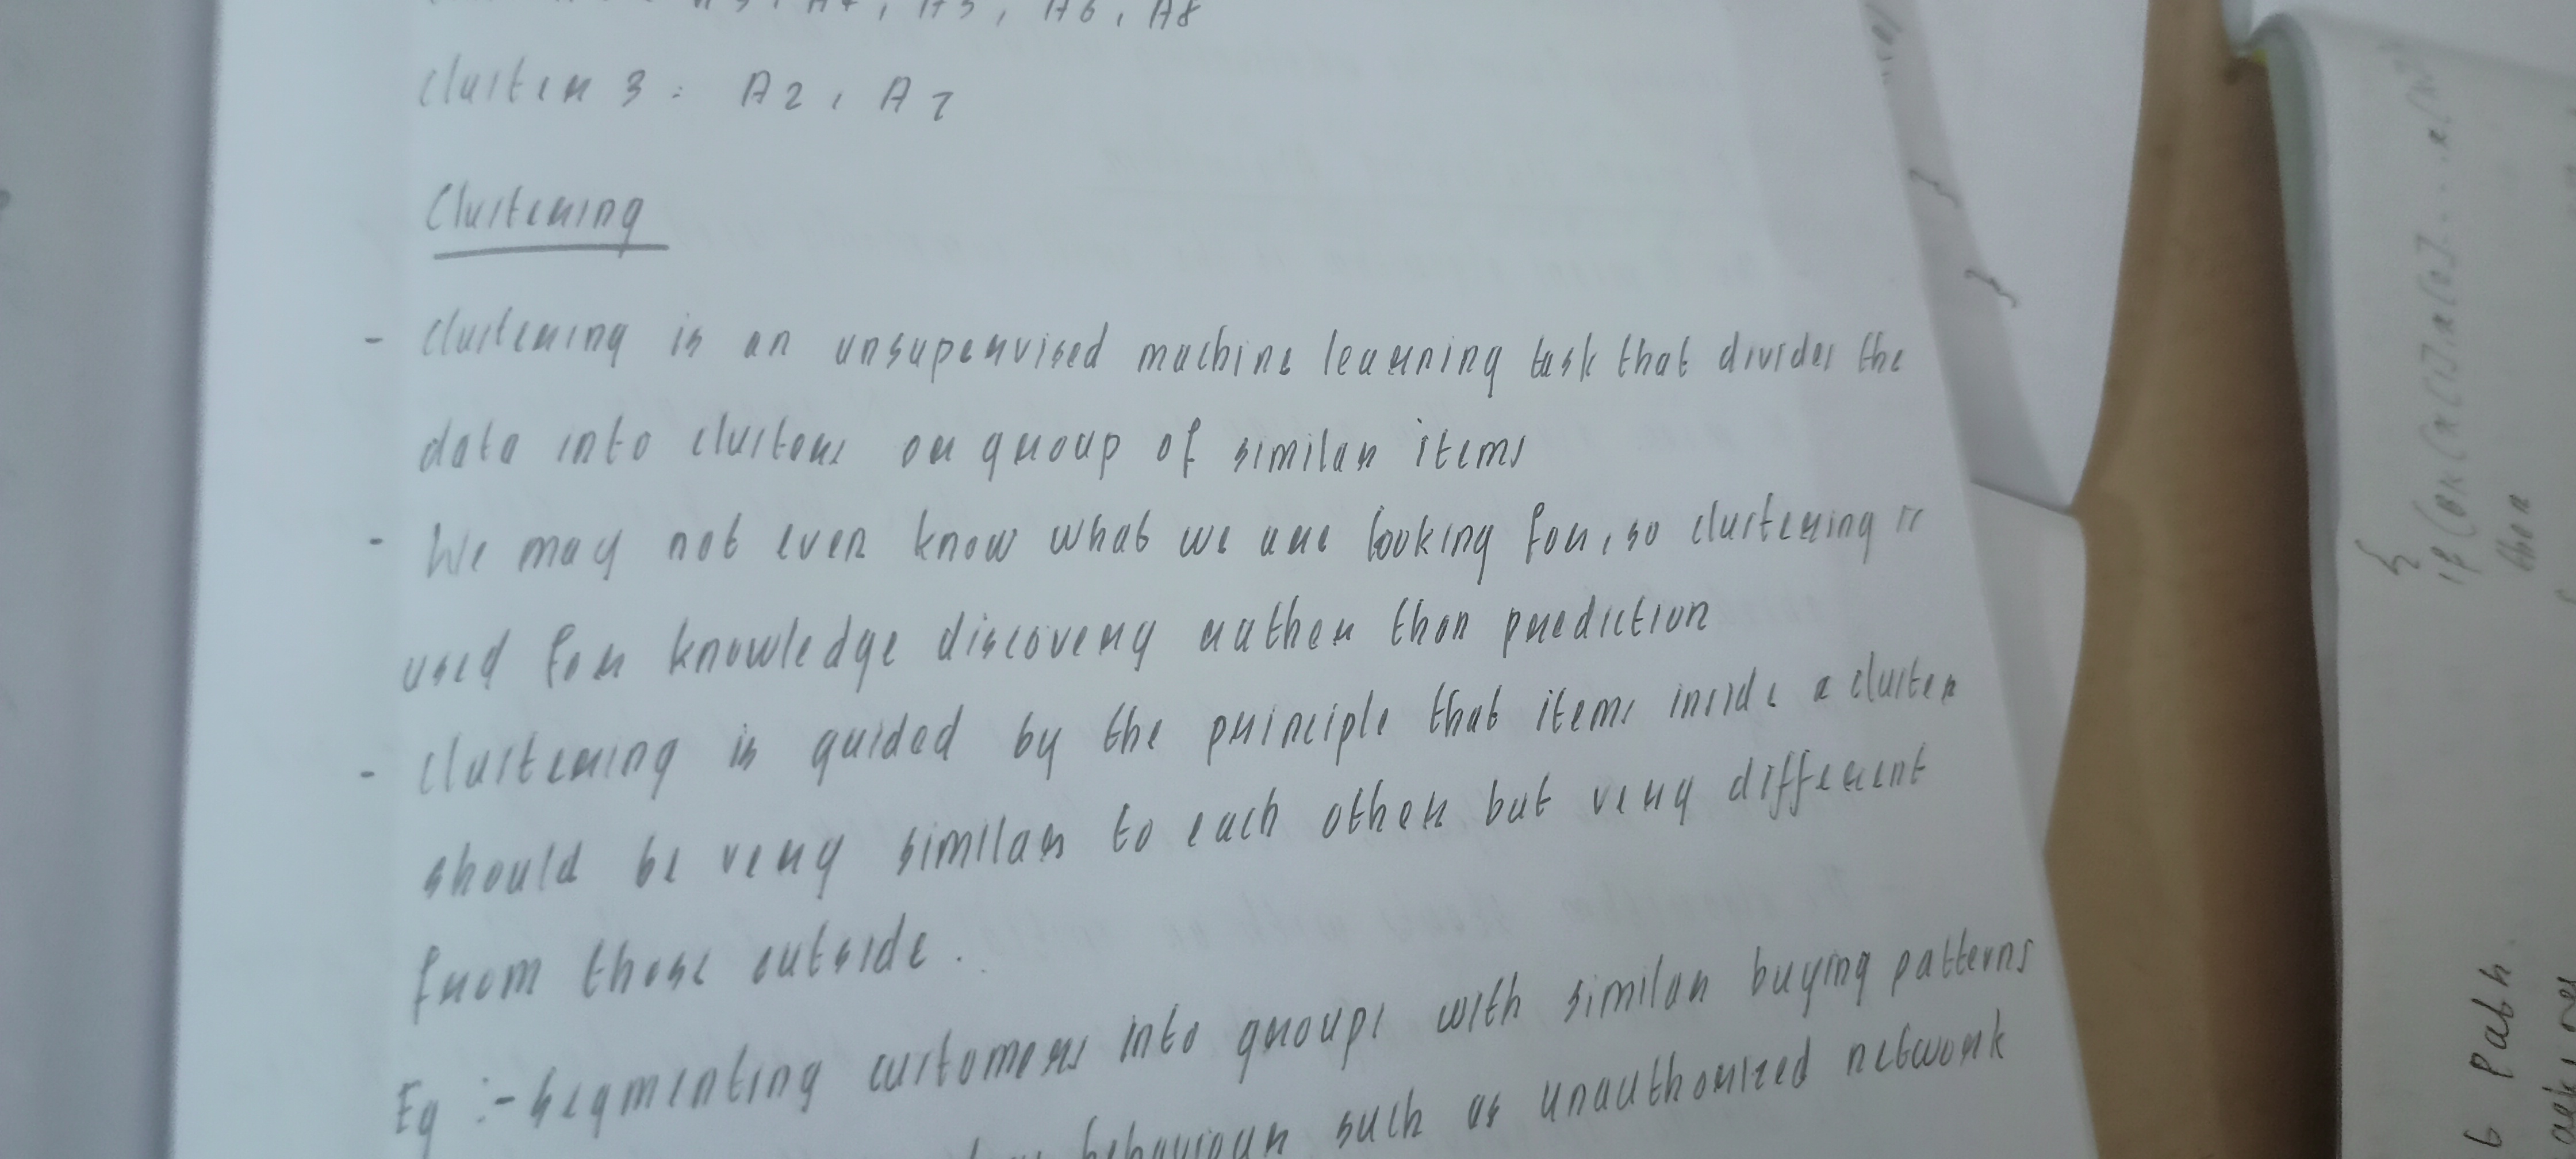 A4, A5, A6, A8
Cluster 3: A2, A7
Clustering
- Clustering is an unsupervised machine learning task that divides the
data into clusters or group of similar items
- We may not even know what we are looking for, so clustering is
used for knowledge discovery rather than prediction
- Clustering is guided by the principle that items inside a cluster
should be very similar to each other but very different
from those outside.
Eg :- Segmenting customers into groups with similar buying patterns
behaviour such as unauthorized network
{
then
path.